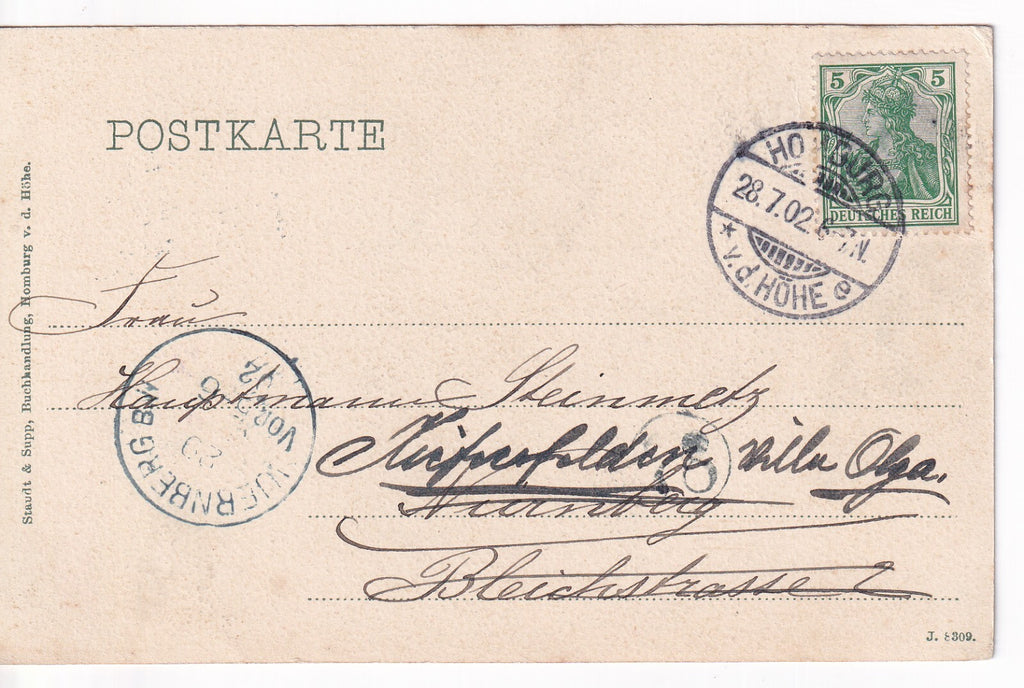 5 5
DEUTSCHES REICH
POSTKARTE
HOMBURG
28.7.02. 6-7N.
★ v.d. HÖHE e
Staudt & Supp, Buchhandlung, Homburg v. d. Höhe.
Frau
Hauptmann Steinmetz
Kiefersfelden Villa Olga.
Nürnberg
Bleichstrasse 2
NUERNBERG
VORM
J. 8309.